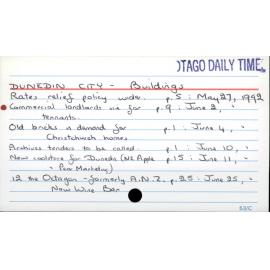 OTAGO DAILY TIME
DUNEDIN CITY - Buildings
Rates relief policy under. p.5 : May 27, 1992
Commercial landlords vie for p.9 : June 3, "
tennants.
Old bricks in demand for p.1 : June 4, "
Christchurch homes
Archives tenders to be called. p.1 : June 10, "
New coolstore for Dunedin (NZ Apple p.15 : June 11, "
& Pear Marketing)
12 the Octagon - formerly A.N.Z. p.25 : June 25, "
New Wine Bar